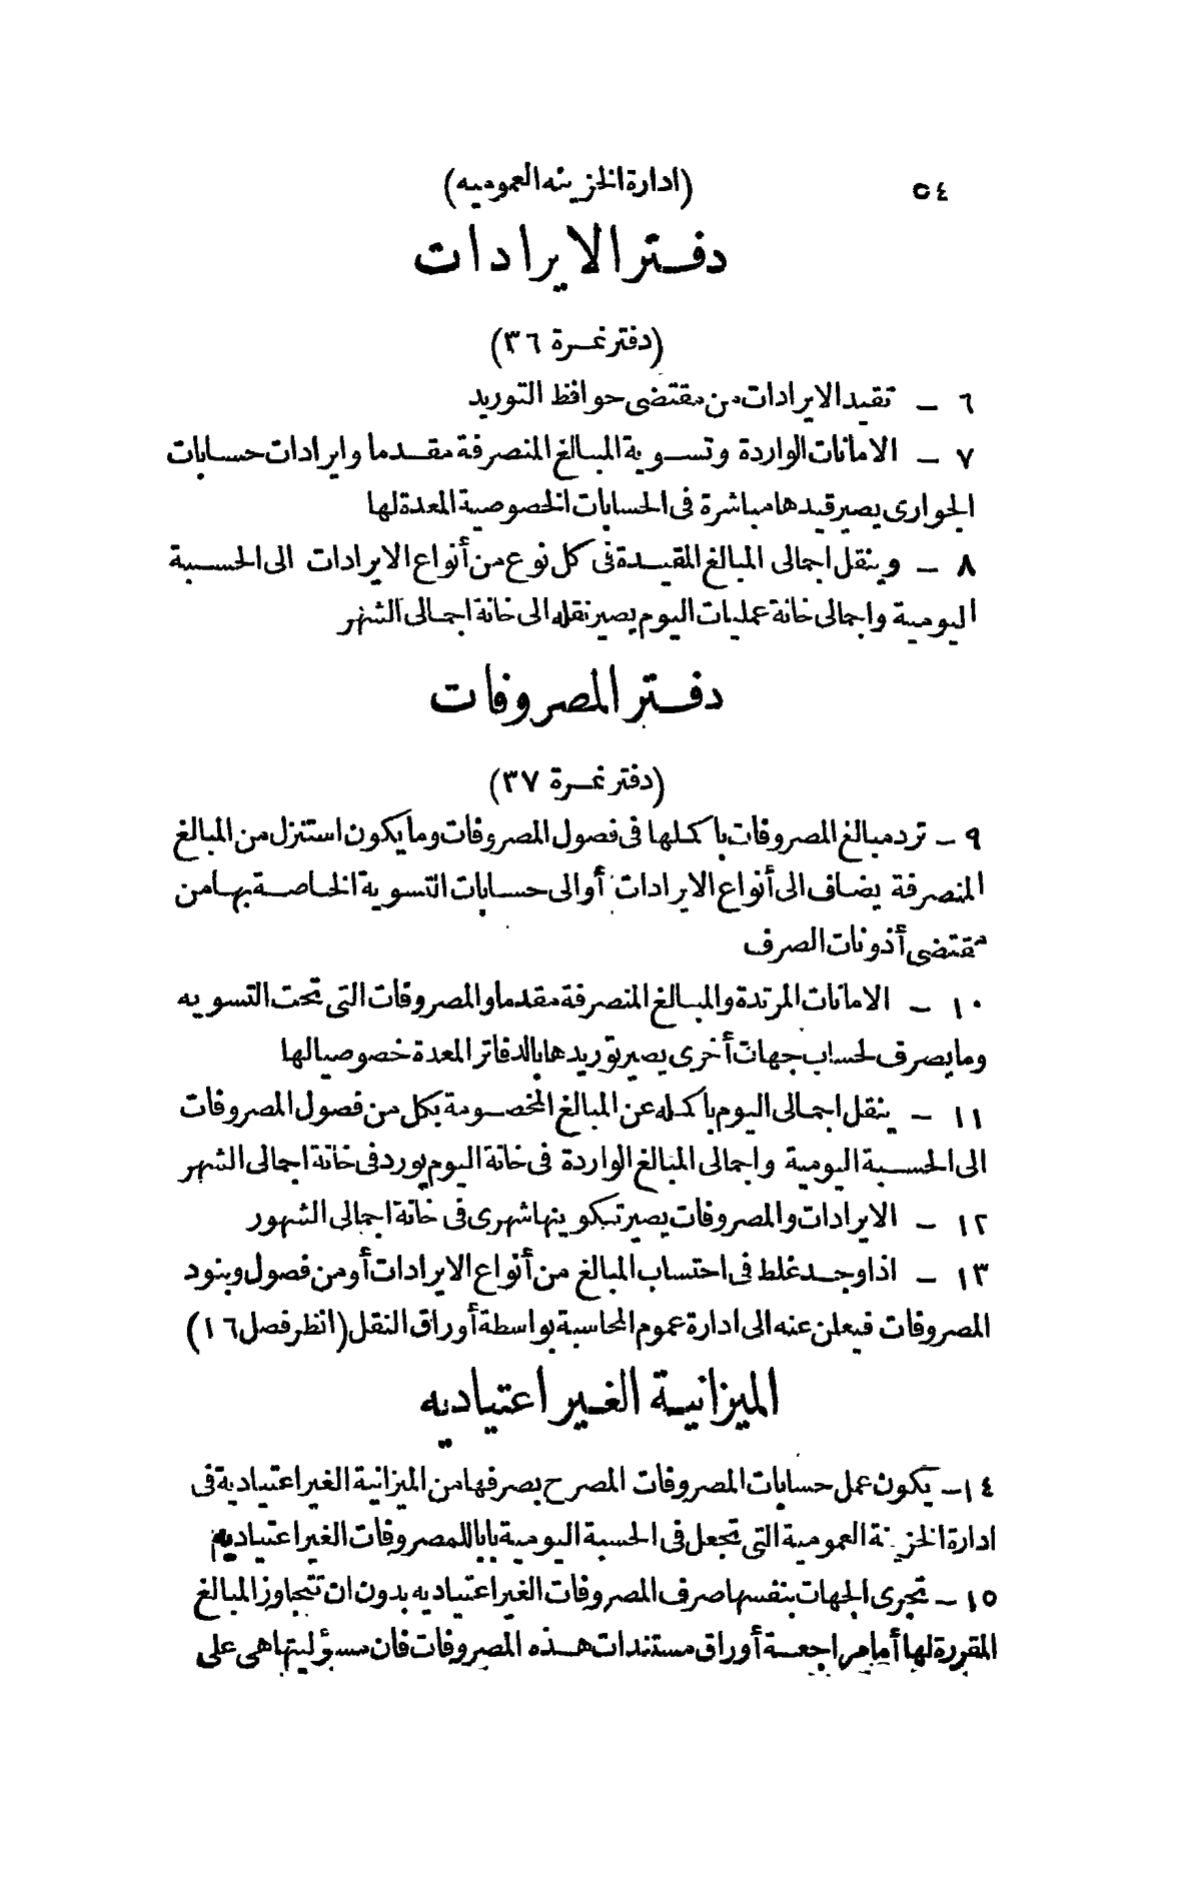 ٥٤ (ادارة الخزينه العموميه)
دفتر الايرادات
(دفتر نمرة ٣٦)
٦ – تقيد الايرادات من مقتضى حوافظ التوريد
٧ – الامانات الواردة وتسوية المبالغ المنصرفة مقدما وايرادات حسابات
الجوارى يصير قيدها مباشرة فى الحسابات الخصوصية المعدة لها
٨ – وينقل اجمالى المبالغ المقيدة فى كل نوع من أنواع الايرادات الى الحسبة
اليومية واجمالى خانة عمليات اليوم يصير نقله الى خانة اجمالى الشهر
دفتر المصروفات
(دفتر نمرة ٣٧)
٩ – ترد مبالغ المصروفات باكملها فى فصول المصروفات وما يكون استنزل من المبالغ
المنصرفة يضاف الى أنواع الايرادات أو الى حسابات التسوية الخاصة بها من
مقتضى أذونات الصرف
١٠ – الامانات المرتدة والمبالغ المنصرفة مقدما والمصروفات التى تحت التسويه
وما يصرف لحساب جهات أخرى يصير توريدها بالدفاتر المعدة خصوصيا لها
١١ – ينقل اجمالى اليوم باكمله عن المبالغ المخصومة بكل من فصول المصروفات
الى الحسبة اليومية واجمالى المبالغ الواردة فى خانة اليوم يورد فى خانة اجمالى الشهر
١٢ – الايرادات والمصروفات يصير تبكوينها شهرى فى خانة اجمالى الشهور
١٣ – اذا وجد غلط فى احتساب المبالغ من أنواع الايرادات أو من فصول وبنود
المصروفات فيعلن عنه الى ادارة عموم المحاسبة بواسطة أوراق النقل (انظر فصل ١٦)
الميزانية الغير اعتياديه
١٤ – يكون عمل حسابات المصروفات المصرح بصرفها من الميزانية الغير اعتيادية فى
ادارة الخزينة العمومية التى تجعل فى الحسبة اليومية بابا للمصروفات الغير اعتياديه
١٥ – تجرى الجهات بنفسها صرف المصروفات الغير اعتياديه بدون ان تتجاوز المبالغ
المقررة لها أما مراجعة أوراق مستندات هذه المصروفات فان مسؤليتها هى على